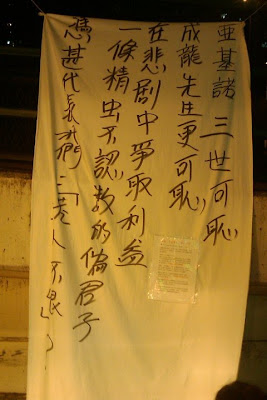 亞基諾 三世可恥
成龍先生更可恥
在悲剧中爭取利益
一條精虫不認数的偽君子
憑甚代表我們「港人不恨」